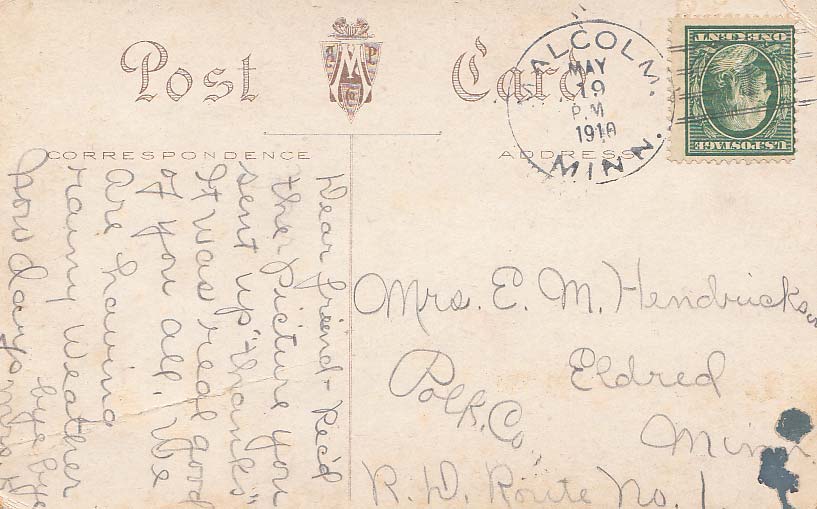 Post Card
CORRESPONDENCE
ADDRESS
ALCOLM.
MAY
19
P.M
1910
MINN.
U.S. POSTAGE
ONE CENT
Dear friend- Rec'd
the Picture you
sent up "thanks"
It was real good
of you all. We
Are having
rainy weather
now days
bye bye
Mrs. E. M. Hendrickson
Eldred
Polk, Co,
Minn.
R. D. Route No. 1